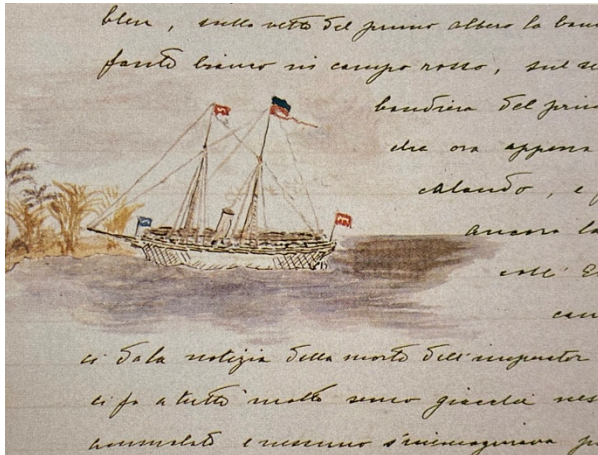 bleu, sulla vetta del primo albero la ban
fante bianco in campo rosso, sul se
bandiera del prin
che ora appena
calando, e
ancora la
coll' E
can
ci dà la notizia della morte dell'imperator
ci fa a tutti molto senso giacché nes
ammalato e nessuno s'immaginava p